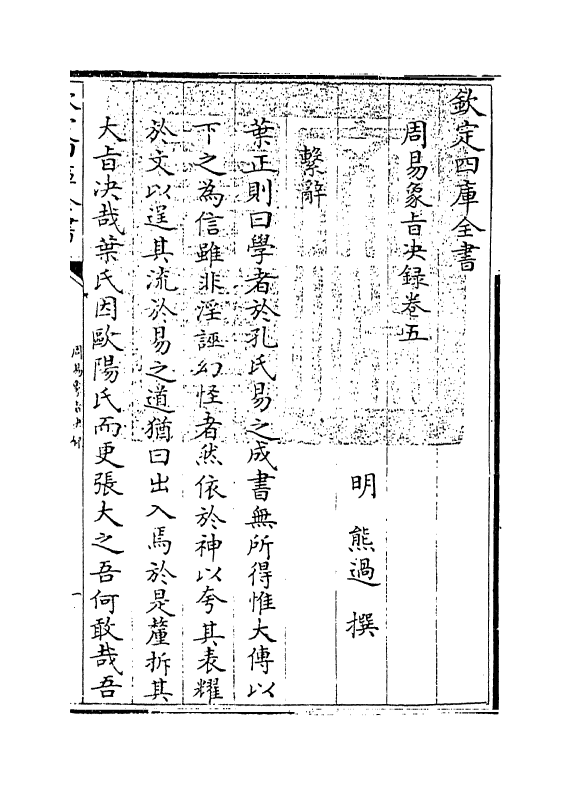 欽定四庫全書
周易象旨決録卷五
明 熊過 撰
繫辭
葉正則曰學者於孔氏易之成書無所得惟大傳以
下之為信雖非淫誣幻怪者然依於神以夸其表耀
於文以逞其流於易之道猶曰出入焉於是釐折其
大旨決哉葉氏因歐陽氏而更張大之吾何敢哉吾
周易象旨決録
一